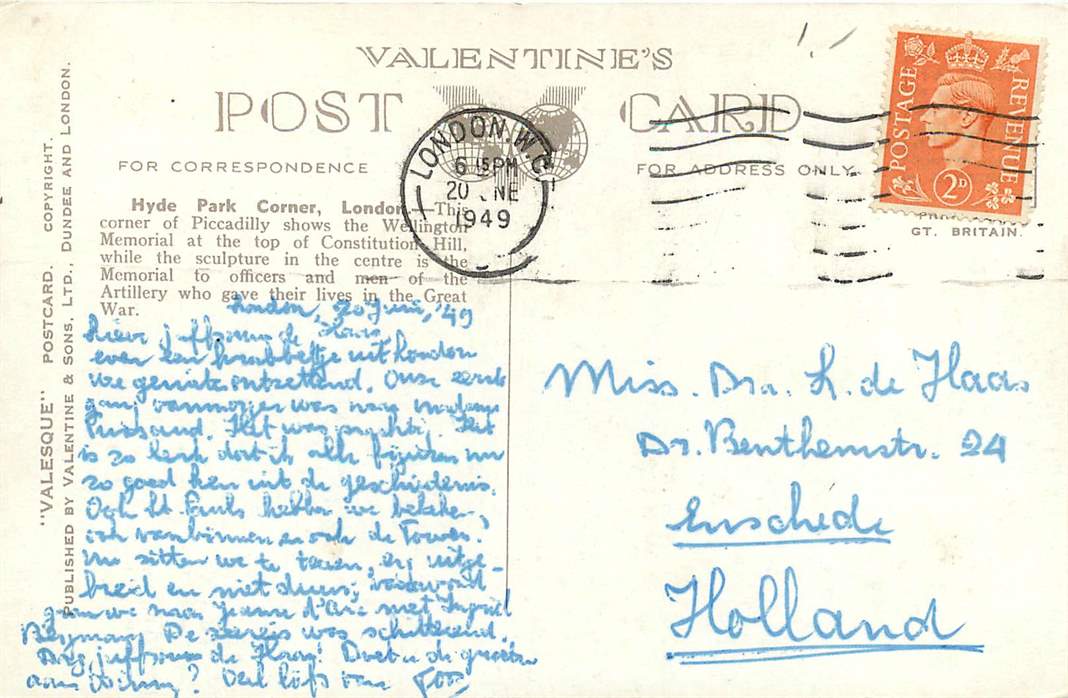 VALENTINE'S
POST CARD
FOR CORRESPONDENCE
FOR ADDRESS ONLY.
LONDON. W.C.
6 15 PM
20 NE
1949
POSTAGE REVENUE
2D
GT. BRITAIN.
"VALESQUE" POSTCARD. COPYRIGHT.
PUBLISHED BY VALENTINE & SONS, LTD., DUNDEE AND LONDON.
Hyde Park Corner, London.—This
corner of Piccadilly shows the Wellington
Memorial at the top of Constitution Hill,
while the sculpture in the centre is the
Memorial to officers and men of the
Artillery who gave their lives in the Great
War.
London, 20 Juni, '49
Lieve juffrouw de Haas
even een krabbeltje uit Londen
we genieten ontzettend. Onze eerste
gang vanmorgen was naar madame
Tussaud. Het was prachtig. Het
is zo leuk dat ik alle figuren nu
zo goed ken uit de geschiedenis.
Ook St. Pauls hebben we bekeken,
ook van binnen en ook de Tower.
Nu zitten we te teaen, erg uitge-
breid en niet duur; vanavond
gaan we naar Jeanne d'Arc met Ingrid
Bergman. De zeereis was schitterend.
Dag juffrouw de Haas! Doet u de groeten
aan ? Veel liefs van
Miss. Dra. L. de Haas
Dr. Benthemstr. 24
Enschede
Holland